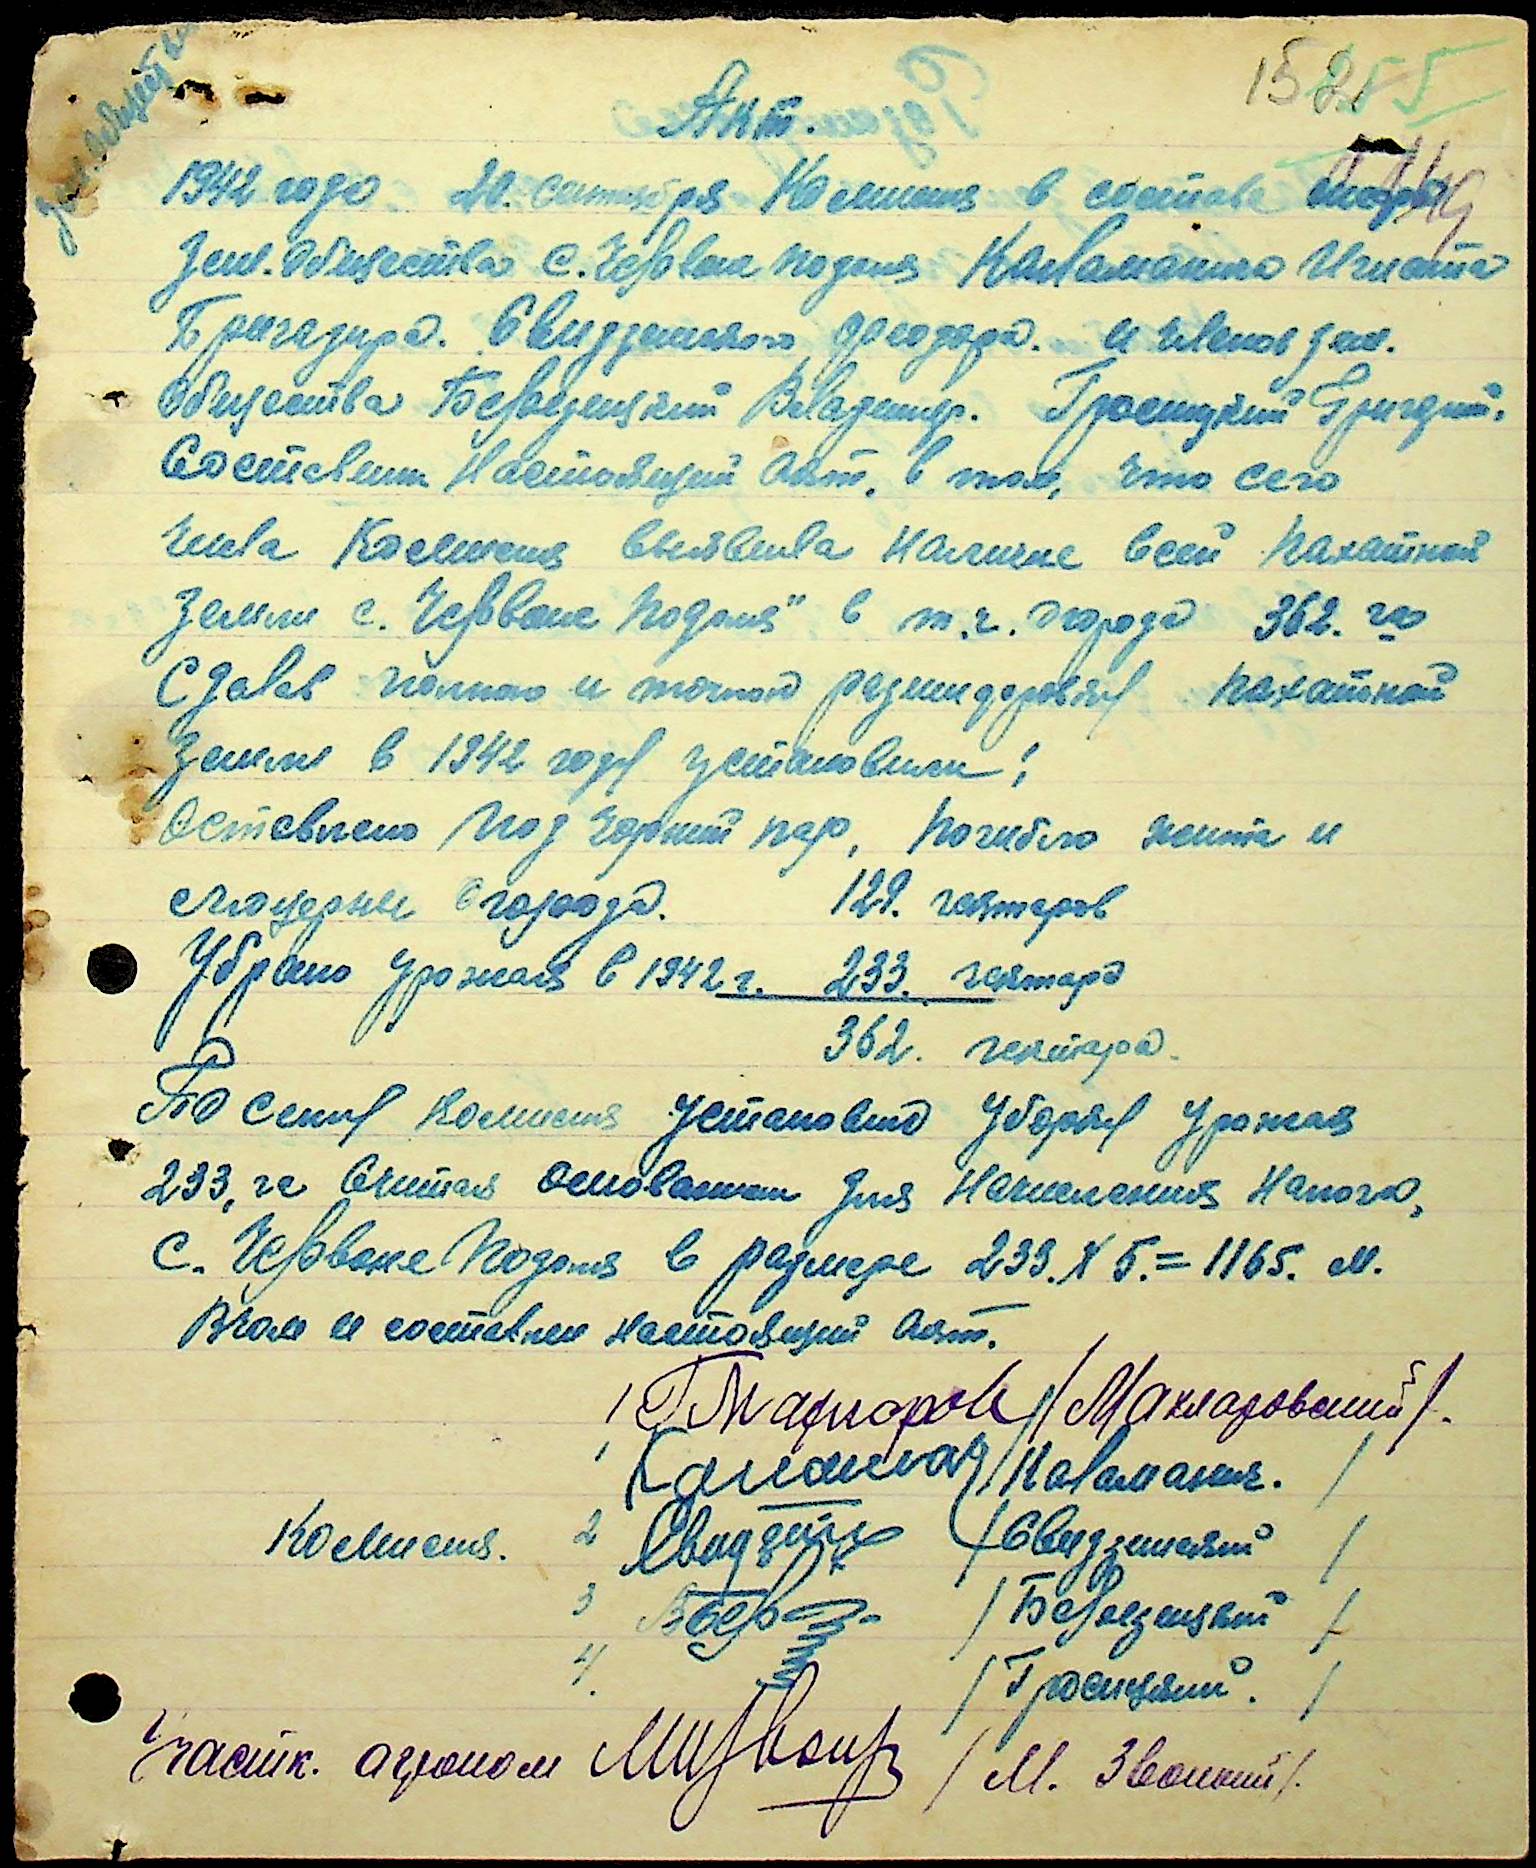 Зем. общества
Акт.
1942 года 21. сентября Комисия в составе
Зем. Общества с. Червоне Подоля Каваманюка Игната
Бригадира. Свидзинского Феодора. и членов зем.
Общества Бервецический Владимир. Гросицкий Григорий.
Составили Настоящий Акт, в том, что сего
числа Комисия выявила наличие всей пахатной
Земли с. Червоне Подоля" в т.ч. огорода 362. га
Сделав полною и точною размидоровку пахатной
Земли в 1942 году установили;
Оставлено под чорний пар, погибло жита и
люцерны огорода. 129. гектаров
Убрано урожая в 1942 г. 233. гектара
362. гектара.
По сему комисия установила уборку урожая
233, га Считая основанием для Начисления Налога,
с. Червоне Подоля в размере 233. Х 5. = 1165. м.
Вчом и составлен настоящий Акт.
/Макларовский/.
1, /Каваманюк. /
Комисия. 2 /Свидзинский /
3 /Бервецический /
4. /Гросицкий. /
Участк. агроном /М. Звонкий/.